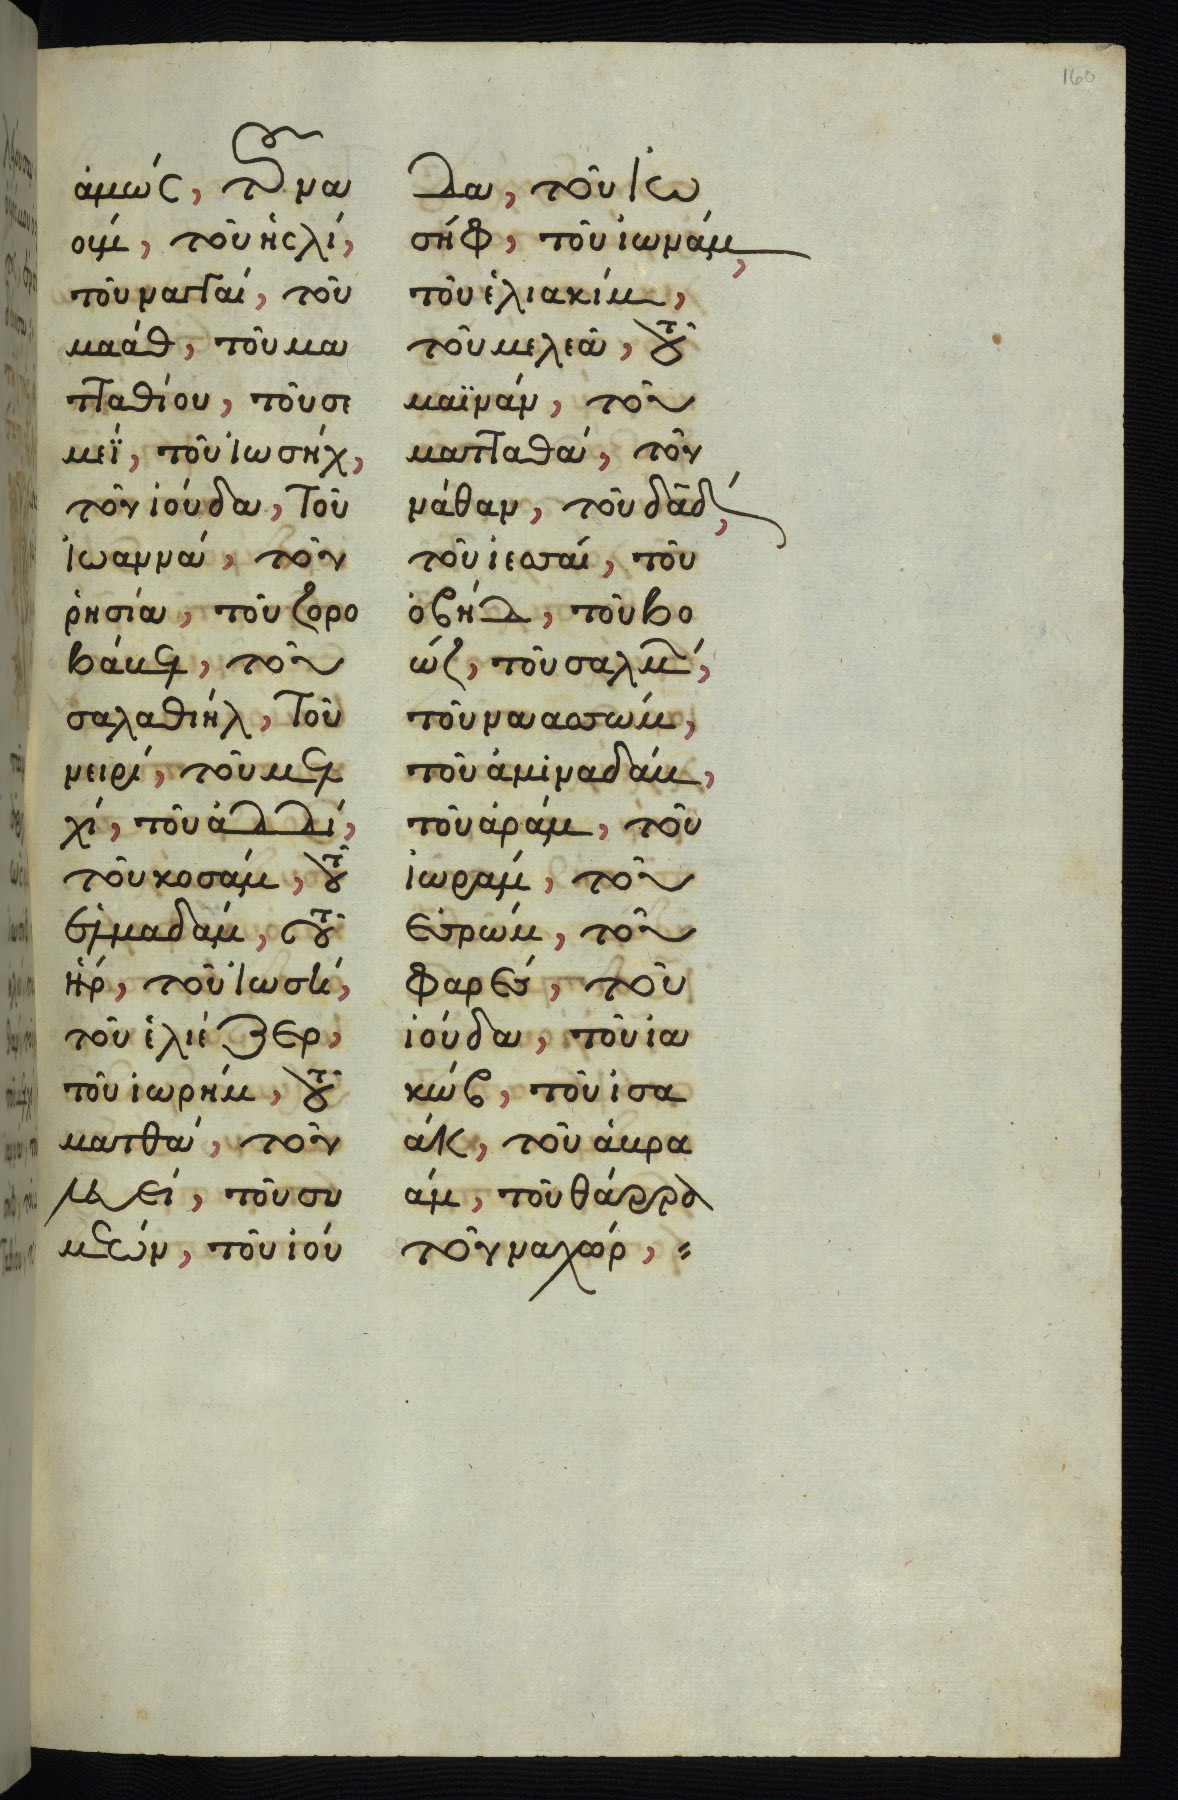 160
ἀμώς, τοῦ να
ούμ, τοῦ ἡσλί,
τοῦ ναγγαί, τοῦ
μαάθ, τοῦ μα
τταθίου, τοῦ σε
μεϊ, τοῦ ἰωσήχ,
τοῦ ἰούδα, τοῦ
ἰωαννά, τοῦ
ῥησία, τοῦ ζορο
βάβελ, τοῦ
σαλαθιήλ, τοῦ
νειρί, τοῦ μελ
χί, τοῦ ἀλλί,
τοῦ κοσάμ, τοῦ
ἐλμαδάμ, τοῦ
ἤρ, τοῦ ἰωσή,
τοῦ ἐλιέζερ,
τοῦ ἰωρήμ, τοῦ
ματθά, τοῦ
λευεί, τοῦ συ
μεών, τοῦ ἰού
δα, τοῦ ἰω
σήφ, τοῦ ἰωνάμ,
τοῦ ἐλιακίμ,
τοῦ μελεᾶ, τοῦ
μαϊνάν, τοῦ
ματταθά, τοῦ
νάθαν, τοῦ δᾱδ,
τοῦ ἰεσσαί, τοῦ
ὀβήδ, τοῦ βο
ώζ, τοῦ σαλμών,
τοῦ ναασσών,
τοῦ ἀμιναδάμ,
τοῦ ἀράμ, τοῦ
ἰωράμ, τοῦ
ἐσρώμ, τοῦ
φαρές, τοῦ
ἰούδα, τοῦ ἰα
κώβ, τοῦ ἰσα
άκ, τοῦ ἀβρα
άμ, τοῦ θάρρα
τοῦ ναχώρ,